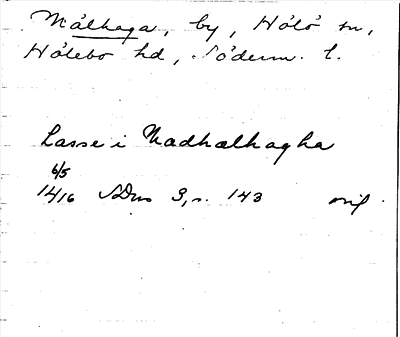 Målhaga, by, Hölö sn,
Hölebo hd, Söderm. l.
Lasse i Madhalhagha
6/5
1416 SDns 3, s. 143 orig.